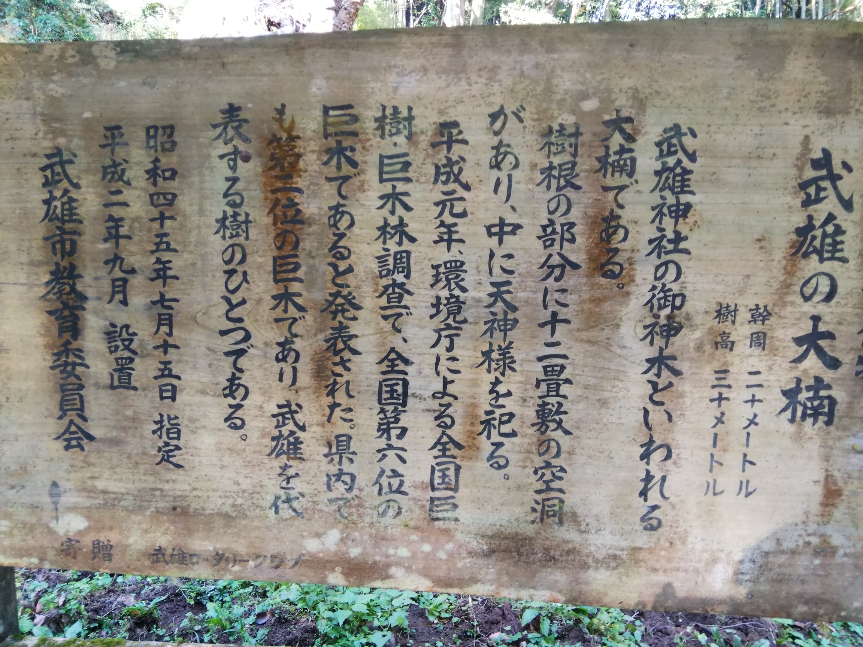 武雄の大楠
幹周 二十メートル
樹高 三十メートル
武雄神社の御神木といわれる
大楠である。
樹根の部分に十二畳敷の空洞
があり、中に天神様を祀る。
平成元年、環境庁による全国巨
樹・巨木林調査で、全国第六位の
巨木であると発表された。県内で
も第二位の巨木であり、武雄を代
表する樹のひとつである。
昭和四十五年七月十五日 指定
平成二年九月 設置
武雄市教育委員会
寄贈 武雄ロータリークラブ